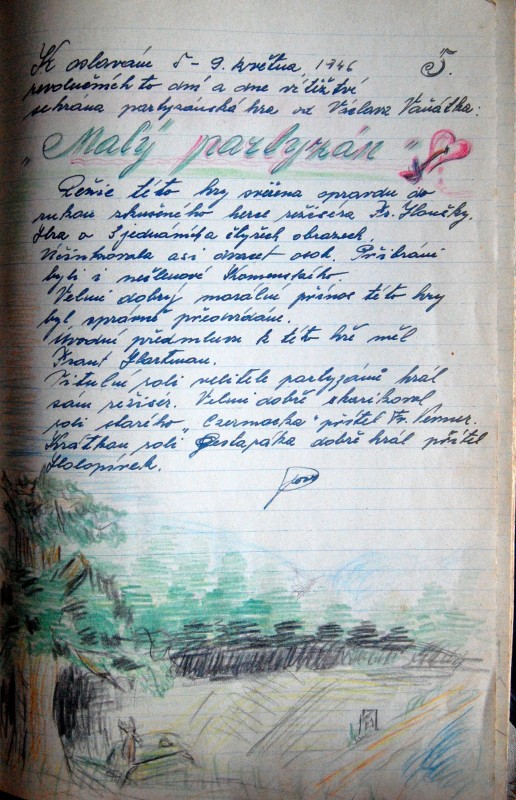 K oslavám 5 - 9. května 1946
5.
revolučních to dní a dne vítězství
sehrána partyzánská hra od Václava Vaňátka:
„Malý partyzán"
Režie této hry svěřena opravdu do
rukou zkušeného herce režiséra Fr. Hloušky.
Hra o 3 jednáních a čtyřech obrazech.
Účinkovalo asi dvacet osob. Přibráni
byli i nečlenové Komenského.
Velmi dobrý morální přínos této hry
byl správně předvídán.
Úvodní předmluvu k této hře měl
Frant Hartman.
Titulní roli velitele partyzánů hrál
sám režisér. Velmi dobře skarikoval
roli starého „Czermacka" přítel Fr. Venner.
Krátkou roli Gestapáka dobře hrál přítel
Holopírek.